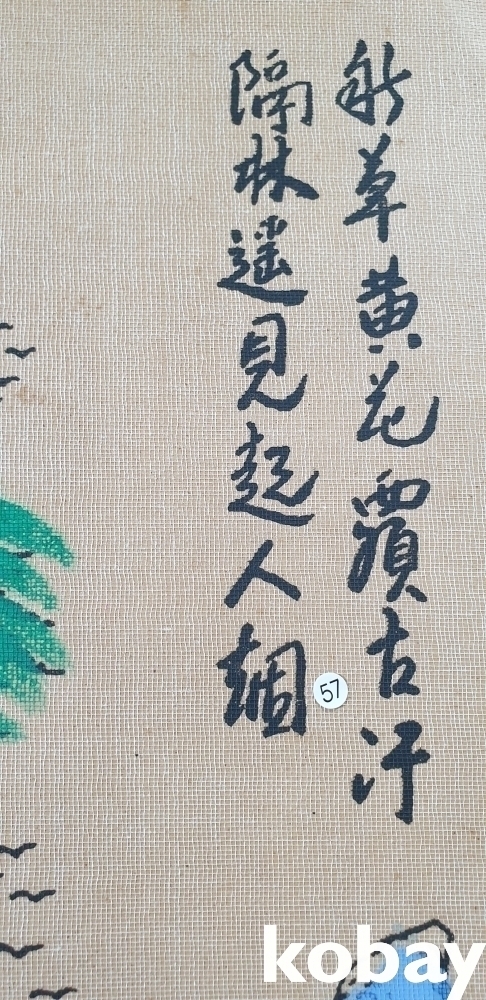 秋草黄花覆古汗
隔林遥見起人
57
kobay